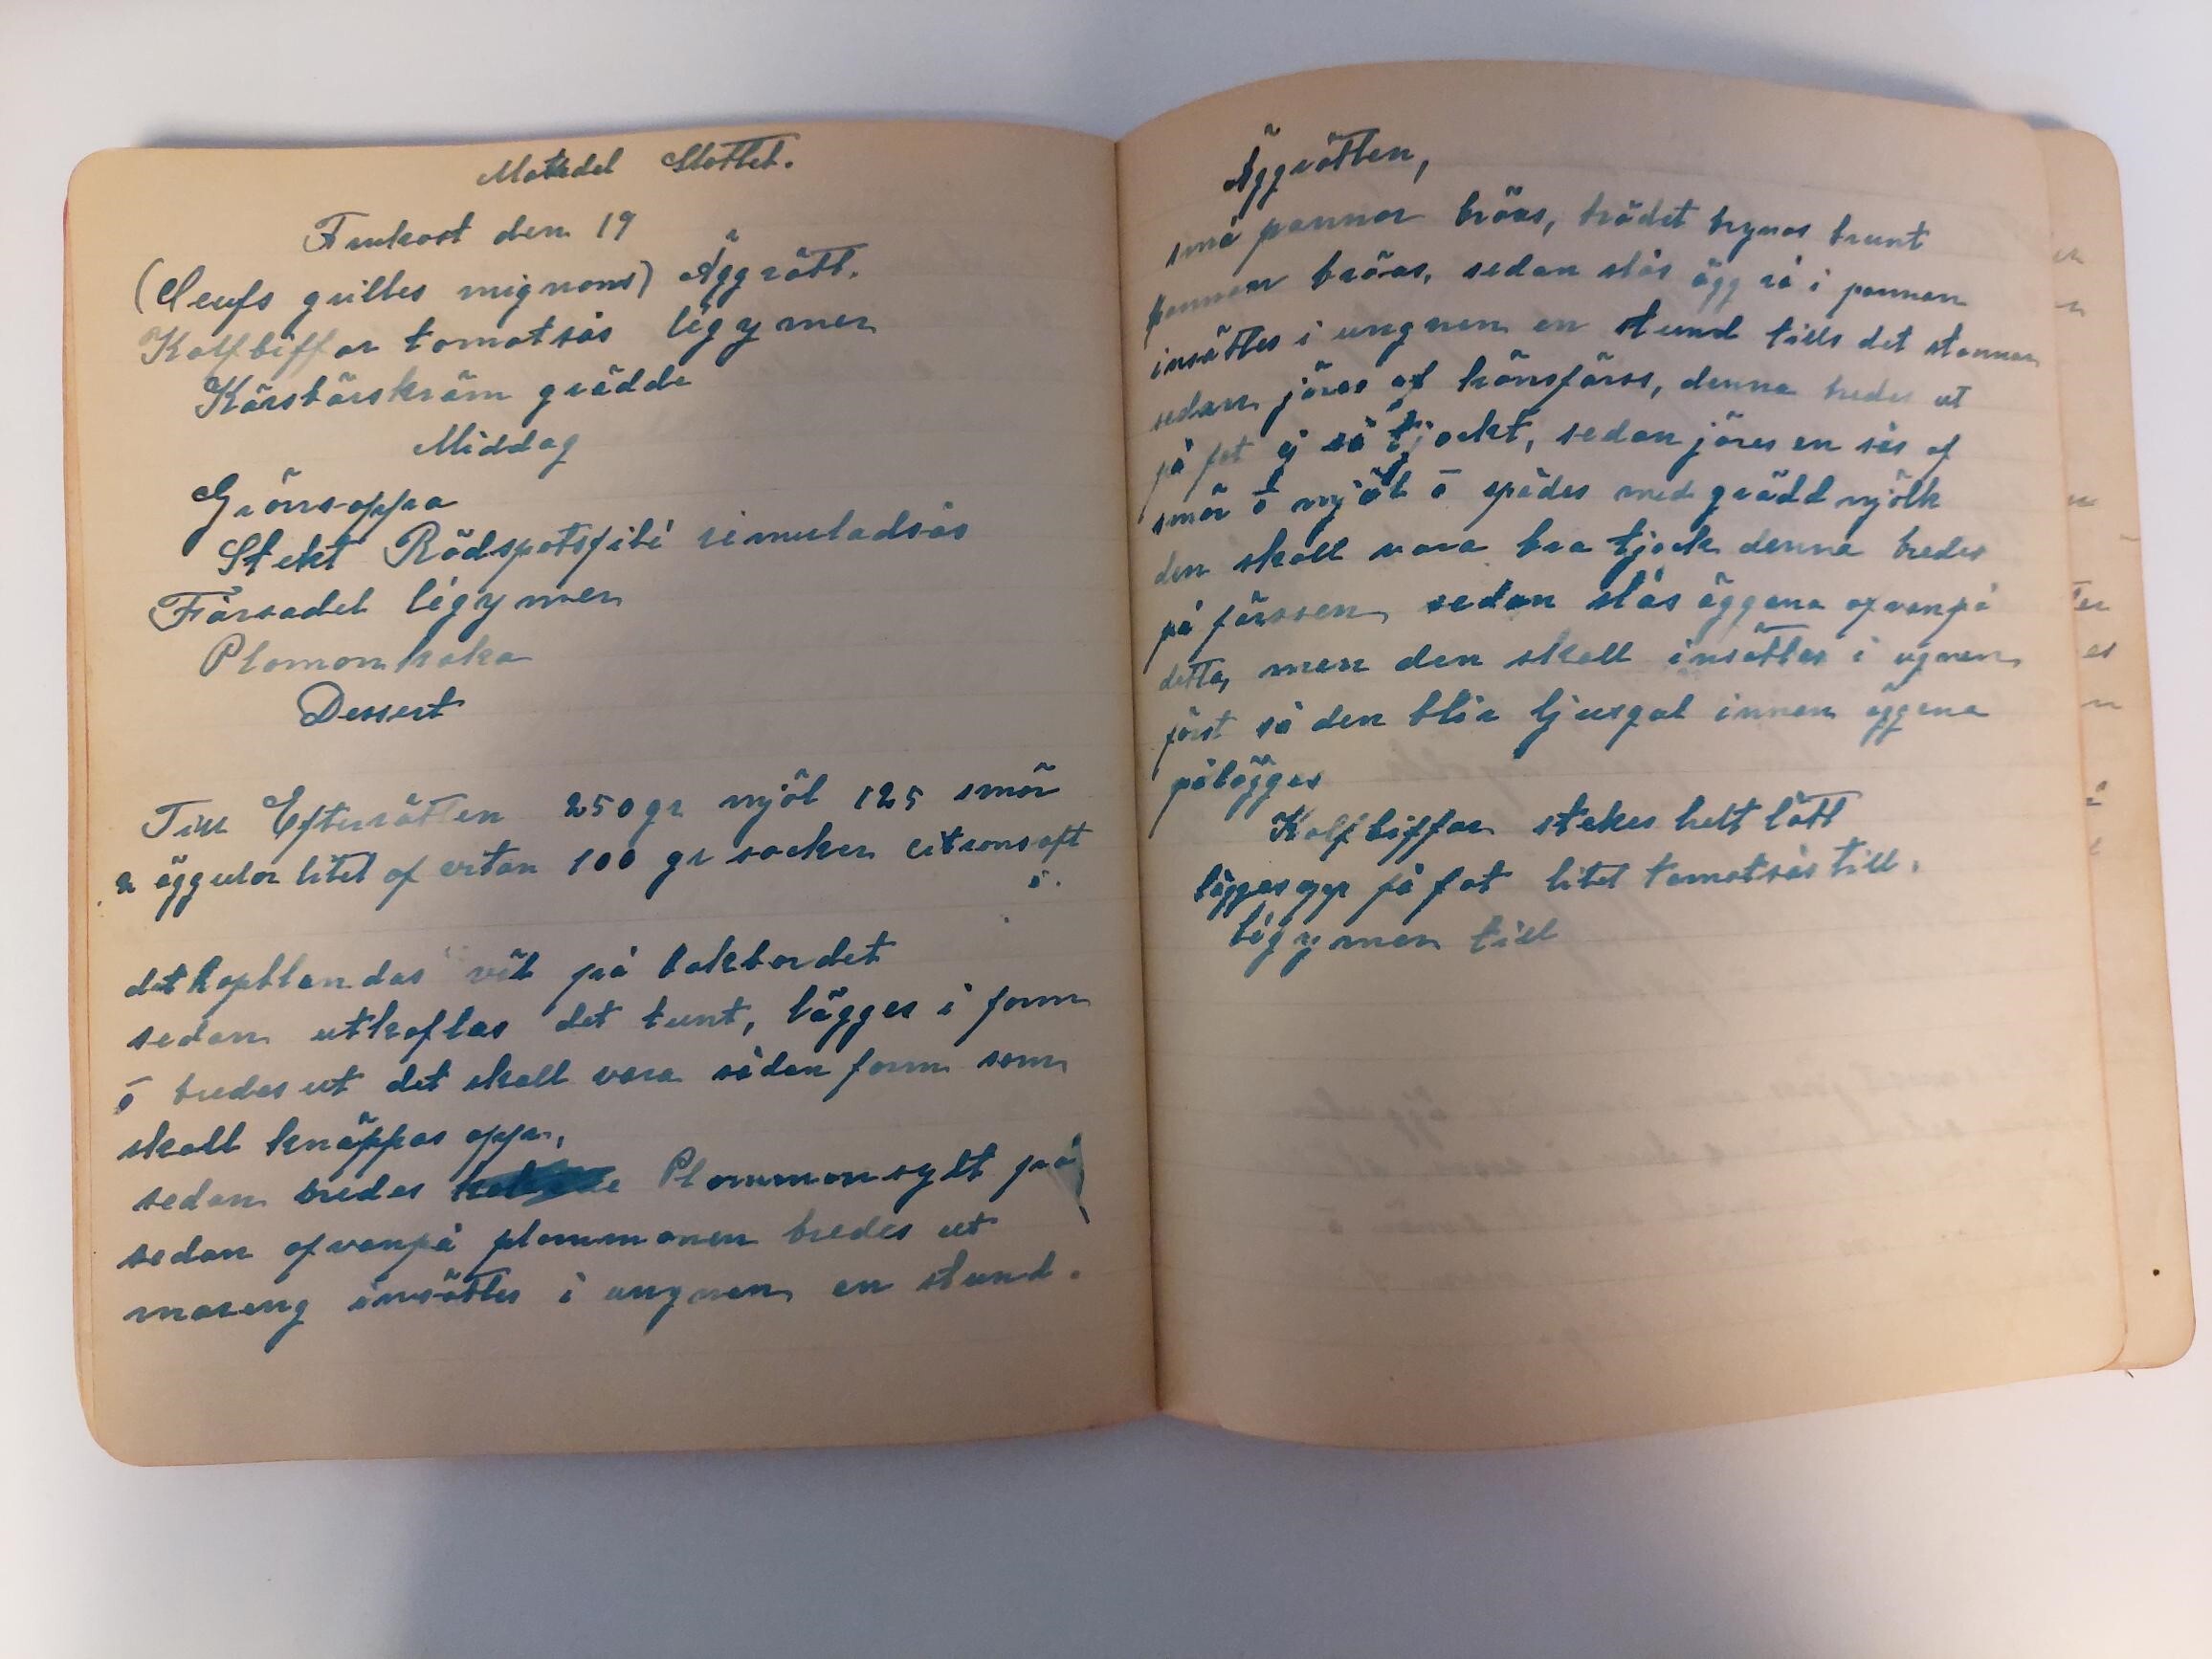 Matsedel Slottet.
Frukost den 19
(Oeufs grilles mignons) Äggrätt.
Kalfbiffar tomatsås légymer
Körsbärskräm grädde
Middag
Grönsoppa
Stekt Rödspotsfilé rimuladsås
Fårsadel légymer
Plomonkaka
Dessert
Till Efterrätten 250 gr mjöl 125 smör
2 äggulor litet af vitan 100 gr socker citronsaft
i.
det hopblandas väl på bakbordet
sedan utkaflas det tunt, lägges i form
o bredes ut det skall vara sådan form som
skall knäppas opp,
sedan bredes Plommonsylt på
sedan ofvanpå plommonen bredes ut
mareng insättes i ungnen en stund.
Äggrätten,
små pannor bröas, brödet brynas brunt
pannan bröas, sedan slås ägg rå i pannan
insättes i ungnen en stund tills det stannar
sedan jöras af hönsfärss, denna bredes ut
på fat ej så tjockt, sedan jöres en sås af
smör o mjöl o spädes med gräddmjölk
den skall vara bra tjock denna bredes
på färssen, sedan slås äggena ofvanpå
detta, men den skall insättas i ugnen
först så den blir ljusgul innan äggena
pålägges
Kalfbiffar stekes helt lätt
lägges opp på fat litet tomatsås till.
légymer till